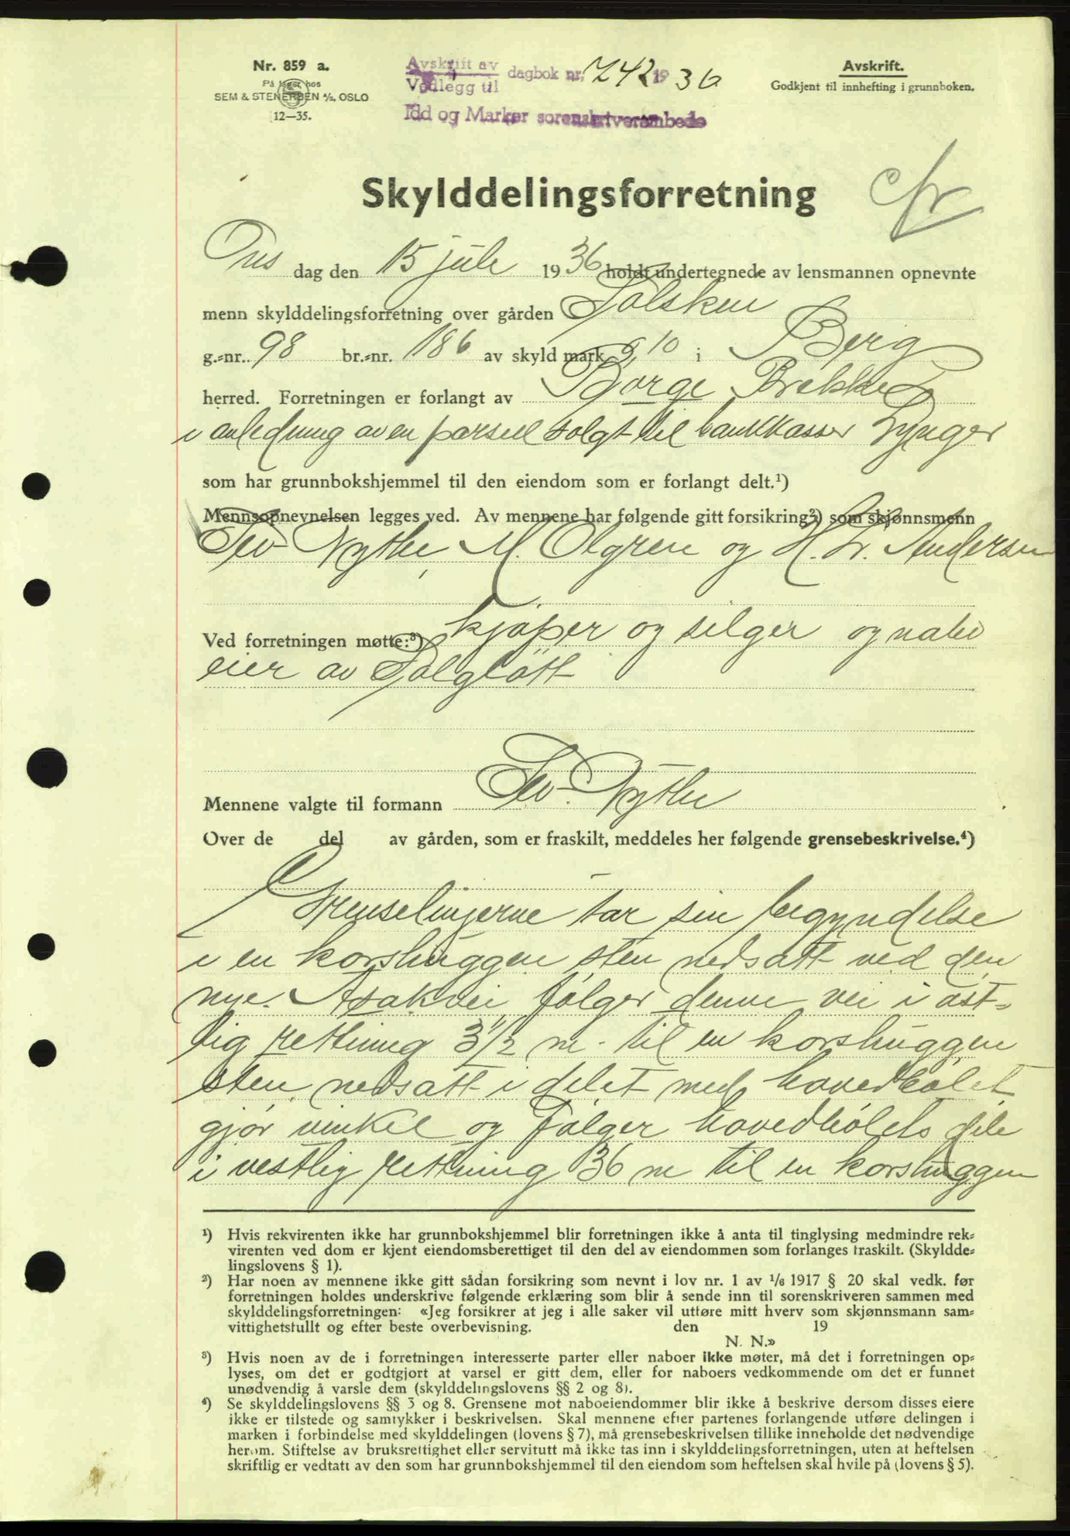 Nr. 859 a.
På lager hos
SEM & STENERSEN A/S, OSLO
12—35.
Avskrift av
Vedlegg til
dagbok nr. 742 1936
Idd og Marker sorenskriverembede
Avskrift.
Godkjent til innhefting i grunnboken.
Skylddelingsforretning
Ons dag den 15 juli 1936 holdt undertegnede av lensmannen opnevnte
menn skylddelingsforretning over gården Solsken
g.-nr. 98 br.-nr. 186 av skyld mark 0,10 i Berg
herred. Forretningen er forlangt av Borge Brekke
i anledning av en parsell solgt til bankkasser Lynger
som har grunnbokshjemmel til den eiendom som er forlangt delt.¹)
Mennsopnevnelsen legges ved. Av mennene har følgende gitt forsikring²) som skjønnsmenn
M. Olgren og H. Kr. Andersen
Ved forretningen møtte:³) kjøper og selger og nabo
eier av Solgløtt
Mennene valgte til formann
Over de del av gården, som er fraskilt, meddeles her følgende grensebeskrivelse.⁴)
Grenselinjerne tar sin begyndelse
i en korshuggen sten nedsatt ved den
nye Asakvei følger denne vei i øst-
lig rettning 3½ m. til en korshuggen
sten nedsatt i delet med hovedbølet
gjør vinkel og følger hovedbølets dele
i vestlig rettning 36 m til en korshuggen
¹) Hvis rekvirenten ikke har grunnbokshjemmel blir forretningen ikke å anta til tinglysing medmindre rek-
virenten ved dom er kjent eiendomsberettiget til den del av eiendommen som forlanges fraskilt. (Skyldde-
lingslovens § 1).
²) Har noen av mennene ikke gitt sådan forsikring som nevnt i lov nr. 1 av 1/6 1917 § 20 skal vedk. før
forretningen holdes underskrive følgende erklæring som blir å sende inn til sorenskriveren sammen med
skylddelingsforretningen: «Jeg forsikrer at jeg i alle saker vil utføre mitt hverv som skjønnsmann sam-
vittighetsfullt og efter beste overbevisning. den 19
N. N.»
³) Hvis noen av de i forretningen interesserte parter eller naboer ikke møter, må det i forretningen op-
lyses, om det er godtgjort at varsel er gitt dem, eller for naboers vedkommende om det er funnet
unødvendig å varsle dem (skylddelingslovens §§ 2 og 8).
⁴) Se skylddelingslovens §§ 3 og 8. Grensene mot naboeiendommer blir ikke å beskrive dersom disses eiere
ikke er tilstede og samtykker i beskrivelsen. Skal mennene efter partenes forlangende utføre delingen i
marken i forbindelse med skylddelingen (lovens § 7), må grensebeskrivelsen tillike inneholde det nødvendige
herom. Stiftelse av bruksrettighet eller servitutt må ikke tas inn i skylddelingsforretningen, uten at heftelsen
skriftlig er vedtatt av den som har grunnbokshjemmel til den eiendom som heftelsen skal hvile på (lovens § 5).